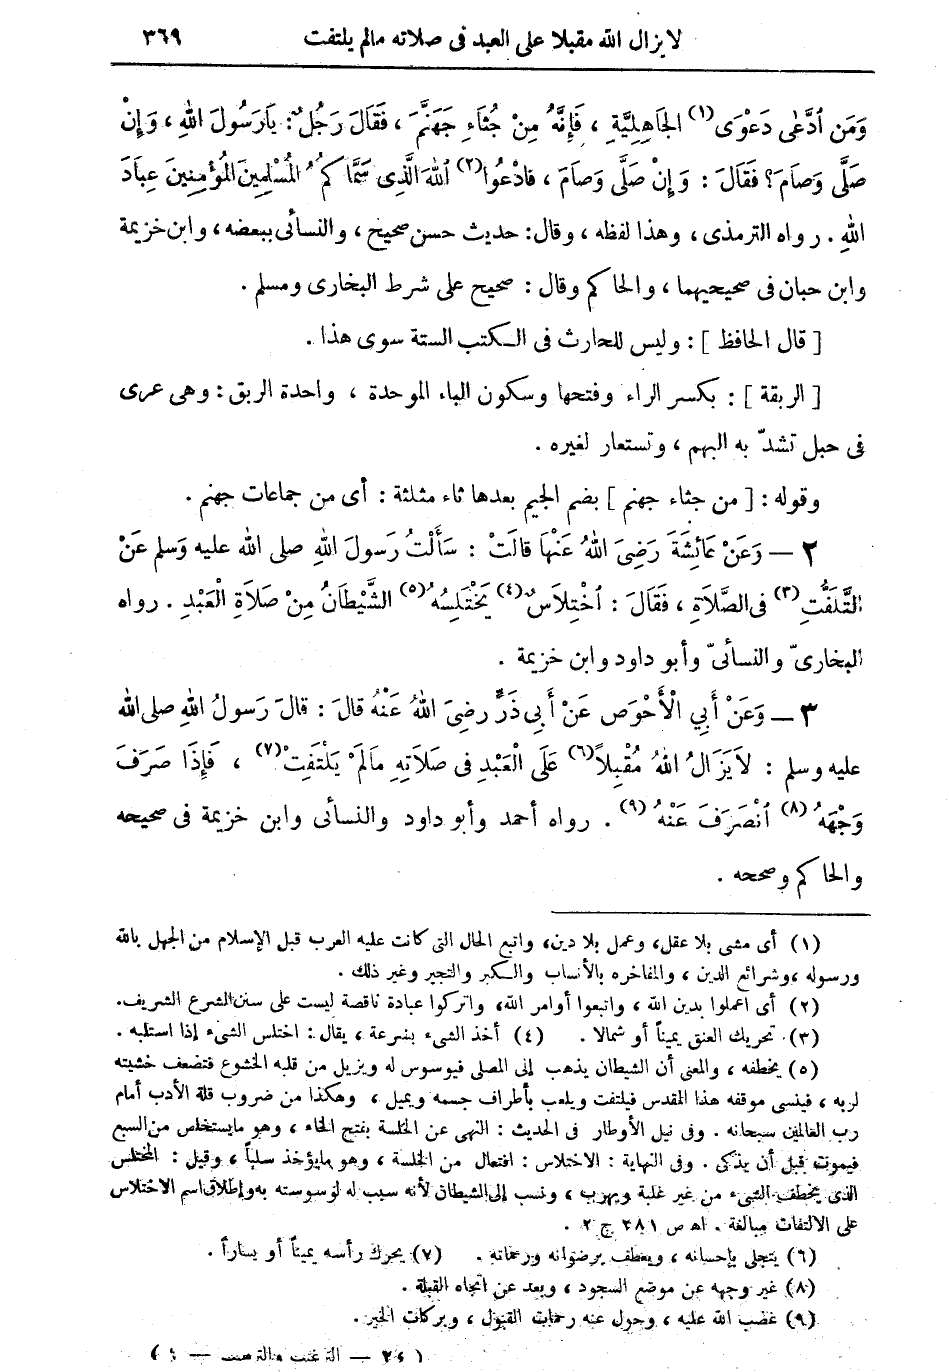 لا يزال الله مقبلا على العبد فى صلاته مالم يلتفت ٣٦٩
وَمَن اُدَّعٰى دَعْوَى(١) الجَاهِلِيَّةِ ، فَإِنَّهُ مِنْ جُثَاءِ جَهَنَّمَ ، فَقَالَ رَجُلٌ: يَارَسُولَ اللهِ ، وَإِنْ
صَلَّى وَصَامَ؟ فَقَالَ : وَإِنْ صَلَّى وَصَامَ ، فَادْعُوا(٢) اللهَ الَّذِى سَمَّاكمُ ُ المُسْلِمِينَ المُؤْمِنِينَ عِبَادَ
اللهِ . رواه الترمذى ، وهذا لفظه ، وقال: حديث حسن صحيح ، والنسائى ببعضه ، وابن خزيمة
وابن حبان فى صحيحيهما ، والحاكم وقال : صحيح على شرط البخارى ومسلم .
[ قال الحافظ ] : وليس للحارث فى الكتب الستة سوى هذا .
[ الربقة ] : بكسر الراء وفتحها وسكون الباء الموحدة ، واحدة الربق : وهى عرى
فى حبل تشدّ به البهم ، وتستعار لغيره .
وقوله : [ من جثاء جهنم ] بضم الجيم بعدها ثاء مثلثة : أى من جماعات جهنم .
٢ — وَعَنْ عَائِشَةَ رَضِىَ اللهُ عَنْهَا قَالَتْ : سَأَلْتُ رَسولَ اللهِ صلى الله عليه وسلم عَنْ
التَّلَفُّتِ(٣) فى الصَّلَاةِ ، فَقَالَ : اُخْتِلَاسٌ(٤) يَخْتَلِسُهُ(٥) الشَّيْطَانُ مِنْ صَلَاةِ الْعَبْدِ . رواه
البخارىّ والنسائىّ وأبو داود وابن خزيمة .
٣ — وَعَنْ أَبِي الْأَحْوَصِ عَنْ أَبِى ذَرٍّ رضِىَ اللهُ عَنْهُ قالَ : قالَ رَسولُ اللهِ صلى الله
عليه وسلم : لاَ يَزَالُ اللهُ مُقْبِلاً(٦) عَلَى الْعَبْدِ فى صَلاَتِهِ مَالَمْ يَلْتَفِتْ(٧) ، فَإِذَا صَرَفَ
وَجْهَهُ(٨) اُنْصَرَفَ عَنْهُ(٩) . رواه أحمد وأبو داود والنسائى وابن خزيمة فى صحيحه
والحاكم وصححه .
(١) أى مشى بلا عقل، وعمل بلا دين، واتبع الحال التى كانت عليه العرب قبل الإسلام من الجهل بالله
ورسوله ، وشرائع الدين ، والمفاخره بالأنساب والكبر والتجبر وغير ذلك .
(٢) أى اعملوا بدين الله ، واتبعوا أوامر الله، واتركوا عبادة ناقصة ليست على سنن الشرع الشريف.
(٣) تحريك العنق يميناً أو شمالا . (٤) أخذ الشىء بسرعة ، يقال : اختلس الشىء إذا استلبه .
(٥) يخطفه ، والمعنى أن الشيطان يذهب إلى المصلى فيوسوس له ويزيل من قلبه الخشوع فتضعف خشيته
لربه ، فينسى موقفه هذا المقدس فيلتفت ويلعب بأطراف جسمه ويميل ، وهكذا من ضروب قلة الأدب أمام
رب العالمين سبحانه . وفى نيل الأوطار فى الحديث : النهى عن الخلسة بفتح الخاء ، وهو مايستخلص من السبع
فيموت قبل أن يذكى . وفى النهاية : الاختلاس : افتعال من الخلسة ، وهو مايؤخذ سلباً ، وقيل : المختلس
الذى يخطف الشىء من غير غلبة ويهرب ، ونسب إلى الشيطان لأنه سبب له لوسوسته به وإطلاق اسم الاختلاس
على الالتفات مبالغة . اه ص ٢٨١ ج ٢ .
(٦) يتجلى بإحسانه ، ويعطف برضوانه ورحماته . (٧) يحرك رأسه يميناً أو يساراً .
(٨) غير وجهه عن موضع السجود ، وبعد عن اتجاه القبلة .
(٩) غضب الله عليه ، وحول عنه رحمات القبول ، وبركات الخير.
( ٢٤ — الترغيب والترهيب — ١ )